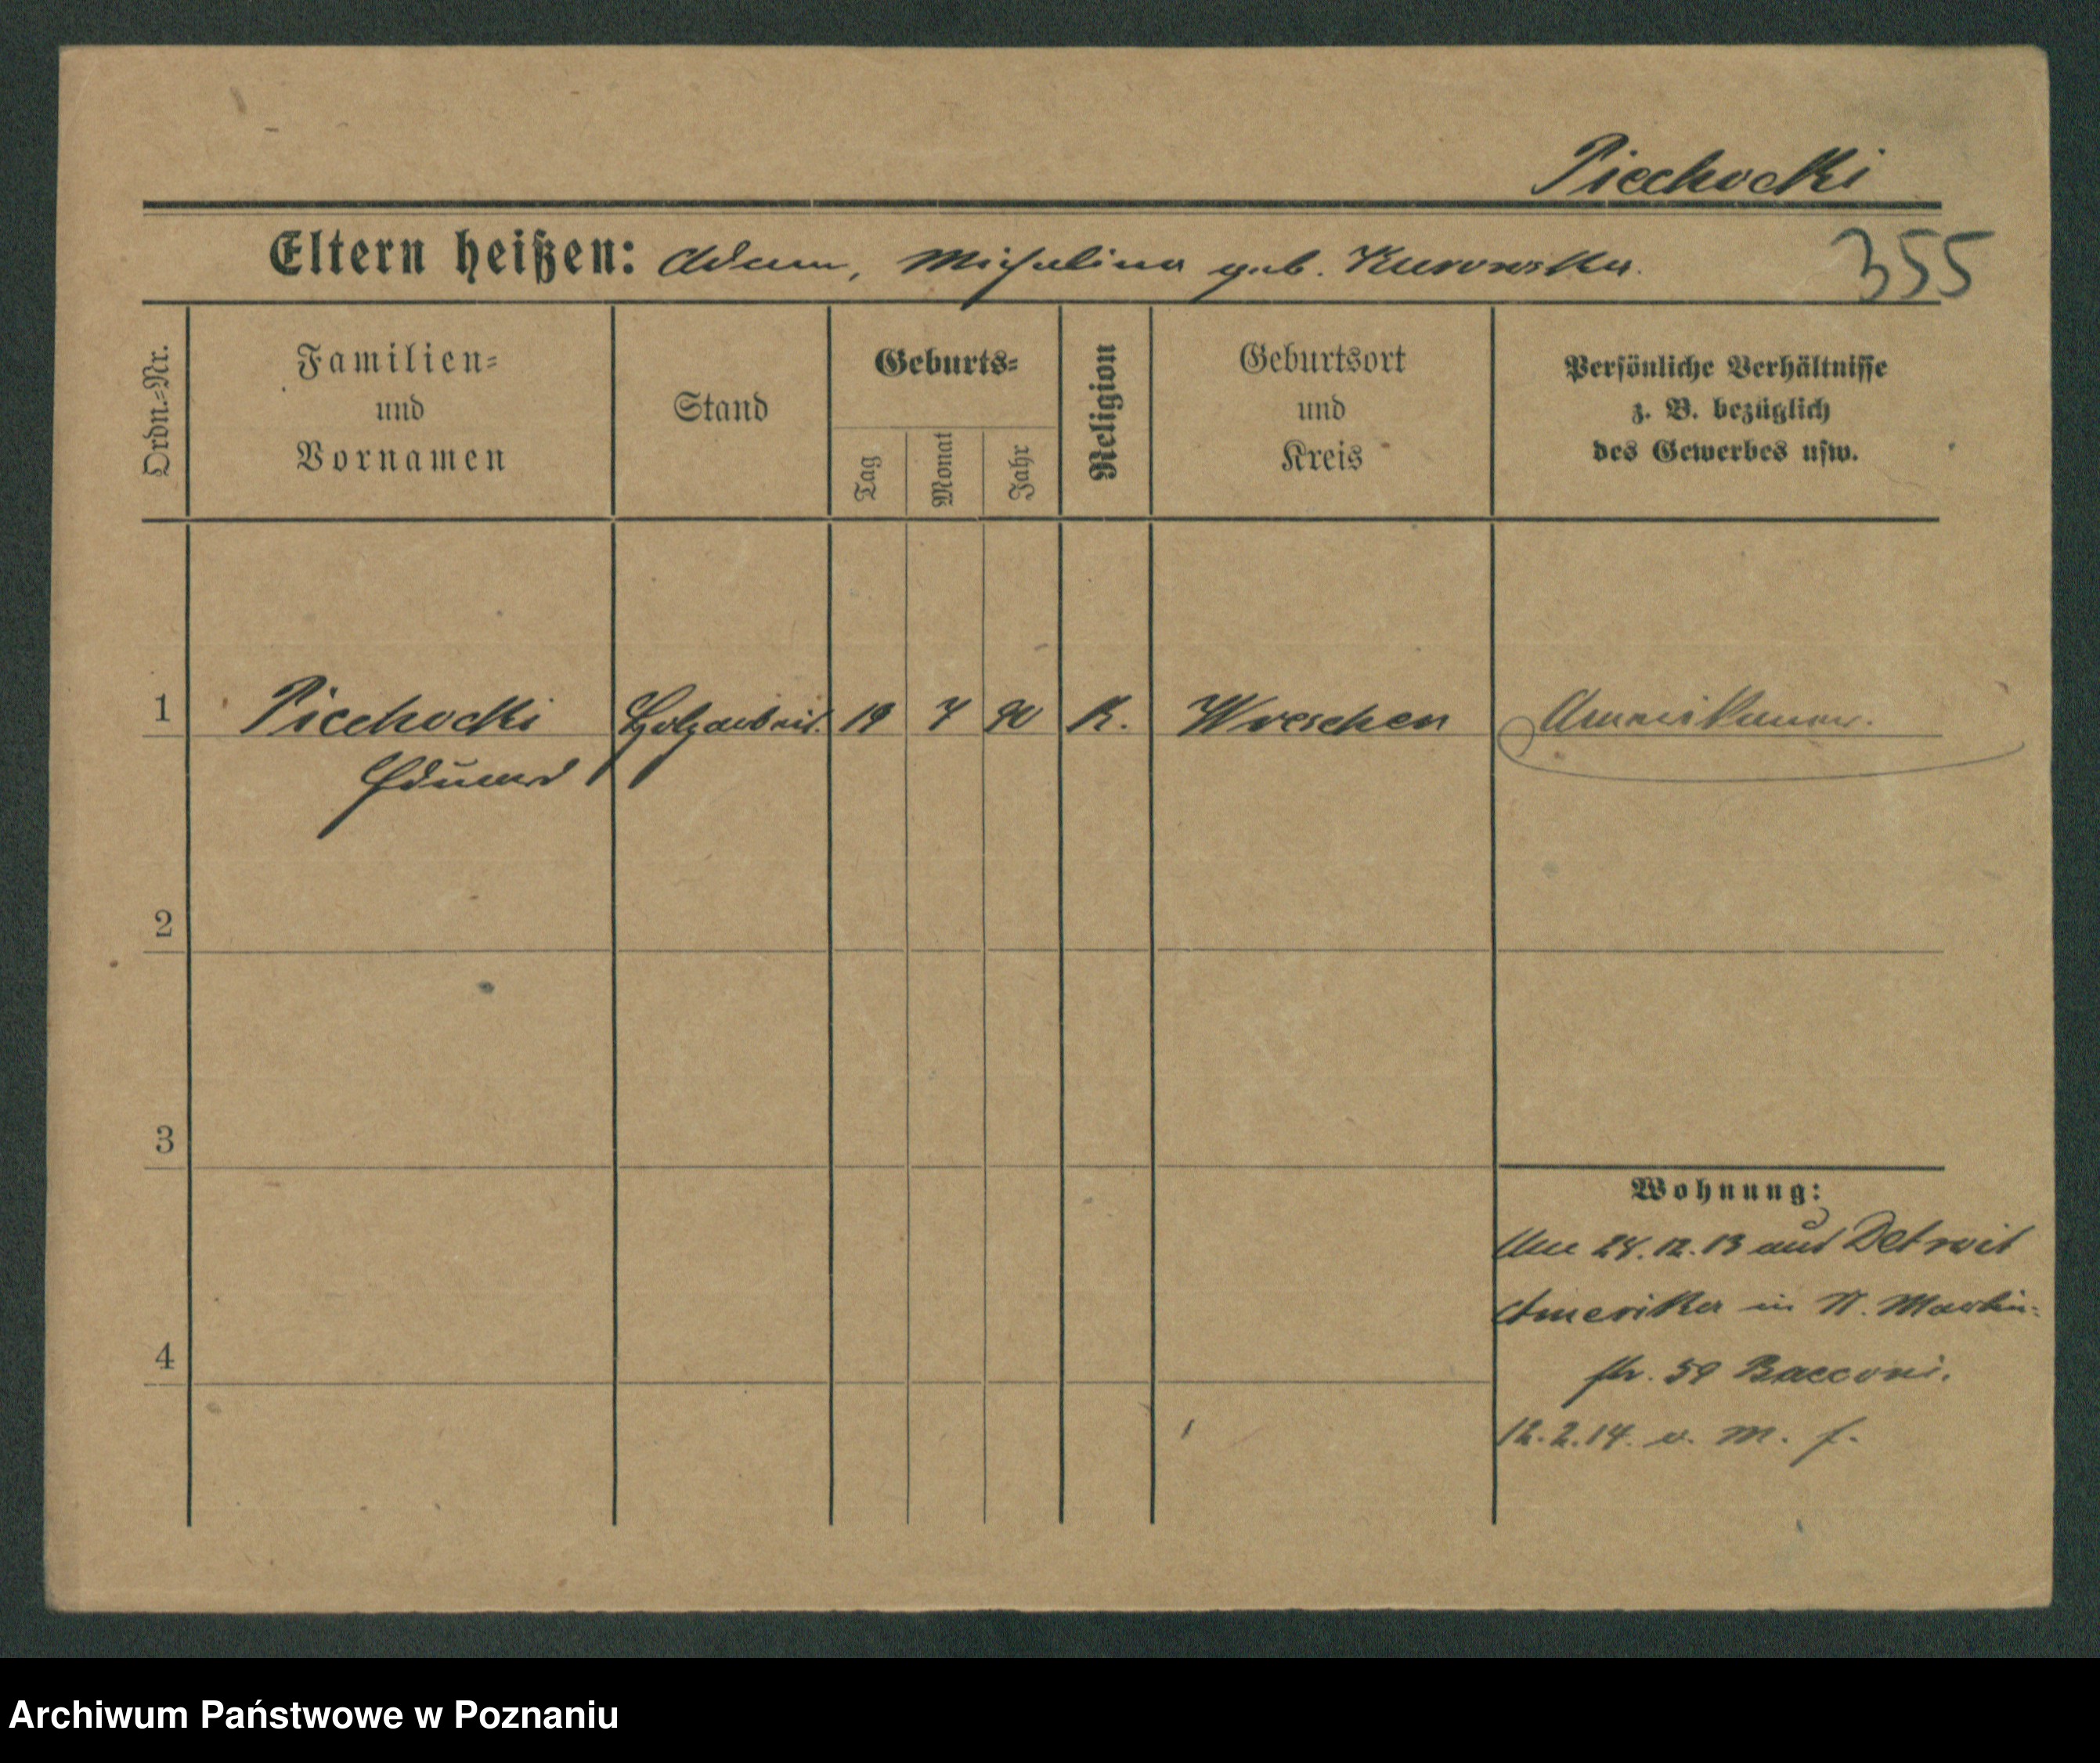 Piechocki
Eltern heißen: Adam, Michalina geb. Kurowska.
355
Ordn.-Nr.
Familien-
und
Vornamen
Stand
Geburts-
Tag
Monat
Jahr
Religion
Geburtsort
und
Kreis
Persönliche Verhältnisse
z. B. bezüglich
des Gewerbes usw.
1 Piechocki Holzarbeit. 19 7 90 K. Wreschen Amerikaner.
Eduard
2
3
4
Wohnung:
Am 24.12.13 aus Detroit
Amerika in St. Martin-
str. 59
12.2.14. v. M. f.
Archiwum Państwowe w Poznaniu